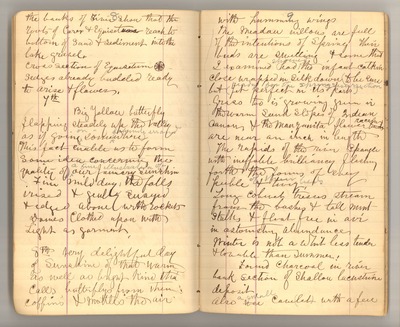 the banks of show that the
roots of Carex & Equisetum reach to
bottom of sand & sediment into the
lake gravel
Cross section of Equisetum
Sedges already budded ready
to arise & flowers.
7th
Big Yellow butterfly
flapping the valley
as if going somewhere
This fact enable us to form
some idea concerning the
quality of our January sunshine
Fine mild day the falls
& gently swayed
& edged above with
Domes clothed upon with
light as garment,
8th Very delightful day
of sunshine of that warm
as well as bright kind that
calls butterflys from their
coffins & the air
with humming wings
The meadow willows are full
of the intentions of Spring their
buds are swelling & some that
I examined had the infant catkin
close wrapped in silk down to be sure
but yet perfect in
Grass too is growing green in
the warm sand slopes of Indian
Canyon, & the Manzanita buds
are near an inch in length
The rapids of the river spangle
with ineffable brilliancy flashing
forth the of every
pebble
Long cobweb tresses stream
from the bushes & tall weed
stalks & float free in air
in astonishing abundance
Winter is not a whit less tender
& lovable than summer.
Found charcoal in river
bank section of shallow lacustrine
deposit
also with a few